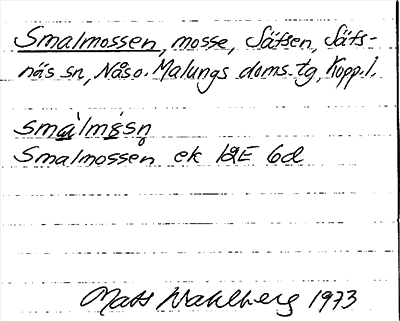 Smalmossen, mosse, Säfsen, Säfs-
näs sn, Nås o. Malungs doms.tg, Kopp.l.
smàlmåsn̥
Smalmossen ek 12E 6d
Mats Wahlberg 1973